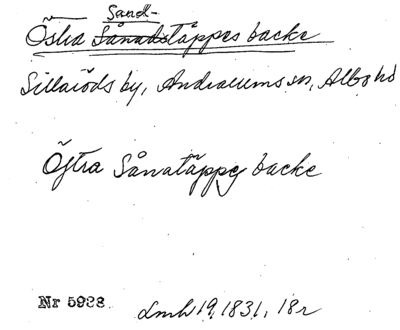 Sand-
Östra Sånadstäppes backe
Sillaröds by, Andrarums sn, Albo hd
Östra Sånatäppes backe
Nr 5988 Lmh 19, 1831, 18r